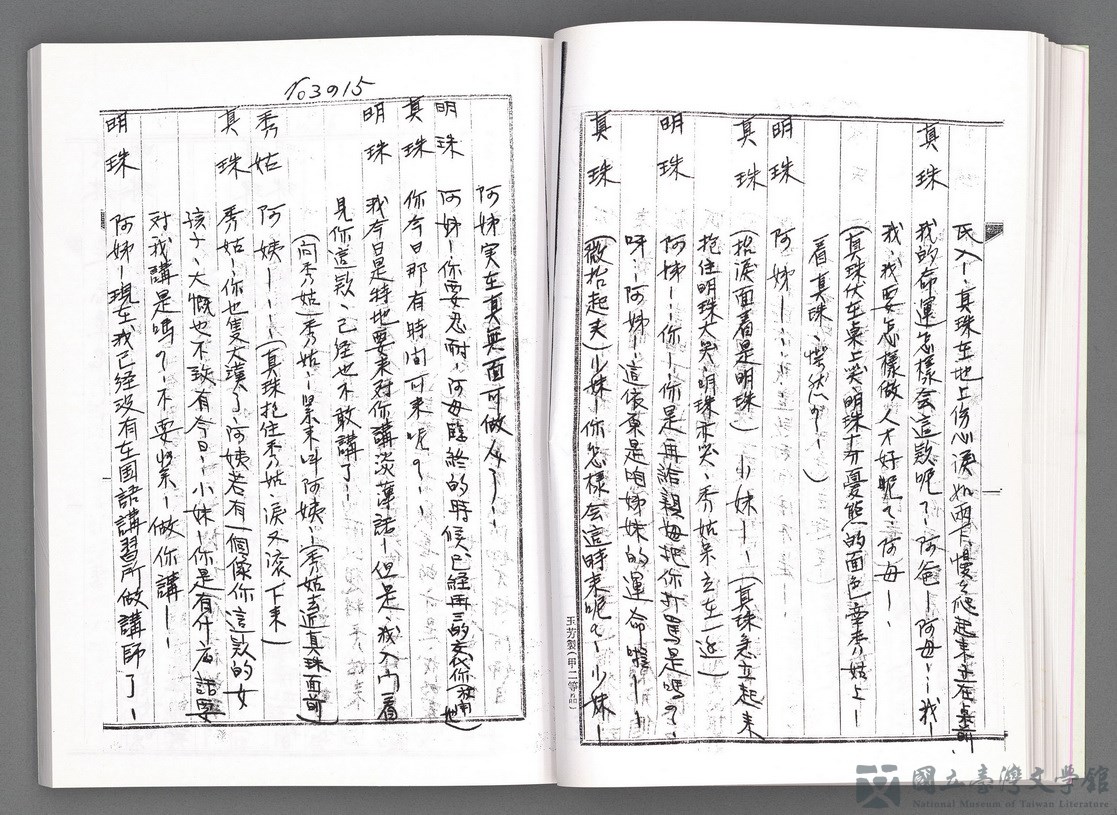 氏入－、真珠在地上伤心淚如雨下、慢々爬起来立在桌前、
真珠　我的命運怎樣会這款呢？－阿爸－阿母－－我－
我、我要怎樣做人才好呢？、阿母－－
（真珠伏在桌上哭、明珠十分憂態的面色牽秀姑上－
看真珠、愕然介－－）
明珠　阿姊－、、、－－
真珠　（抬淚面看是明珠）小妹－－（真珠急立起来
抱住明珠大哭、明珠亦哭、秀姑呆立在一边）
明珠　阿姊－－你－－你是再給親母把你打罵是嗎？、
呀－－阿姊－－這依原是咱姊妹的運命啦－－－
真珠　（微抬起夫）小妹－你怎樣会這時来呢？－小妹－
玉芳製（甲二等品）
103015
阿姊実在真無面可做人了－－
明珠　阿姊－你要忍耐、阿母臨終的時候、已經再三的交代你
真珠　你今日那有時间可来呢？－－
明珠　我今日是特地要来对你講淡薄話－但是、我入门看
見你這款、已経也不敢講了－
（向秀姑）秀姑－－緊来叫阿姨－（秀姑走近真珠面前）
秀姑　阿姨－－－－（真珠抱住秀姑、淚又滚下来）
真珠　秀姑－－你也隻大漢了、阿姨若有一個像你這款的女
孩子、大慨也不致有今日－、小妹－你是有什庅話要
对我講是嗎？－不要紧－做你講－－
明珠　阿姊－現在我已経没有在国語講習所做講師了－
國立臺灣文學館
National Museum of Taiwan Literature